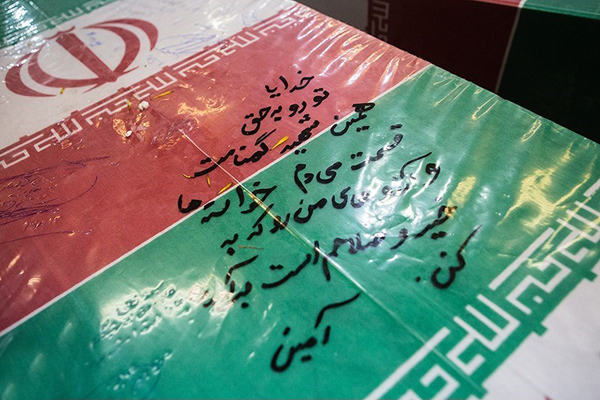 خدایا
تو رو به حق
همین شهید گمنامت
قسمت می دم خواسته ها
و آرزوهای من رو که به
خیر و صلاحم است برآورده
کن.
آمین